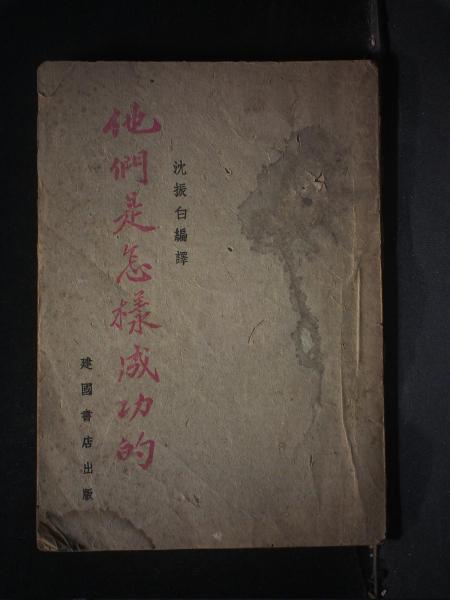 沈振白編譯
他們是怎樣成功的
建國書店出版